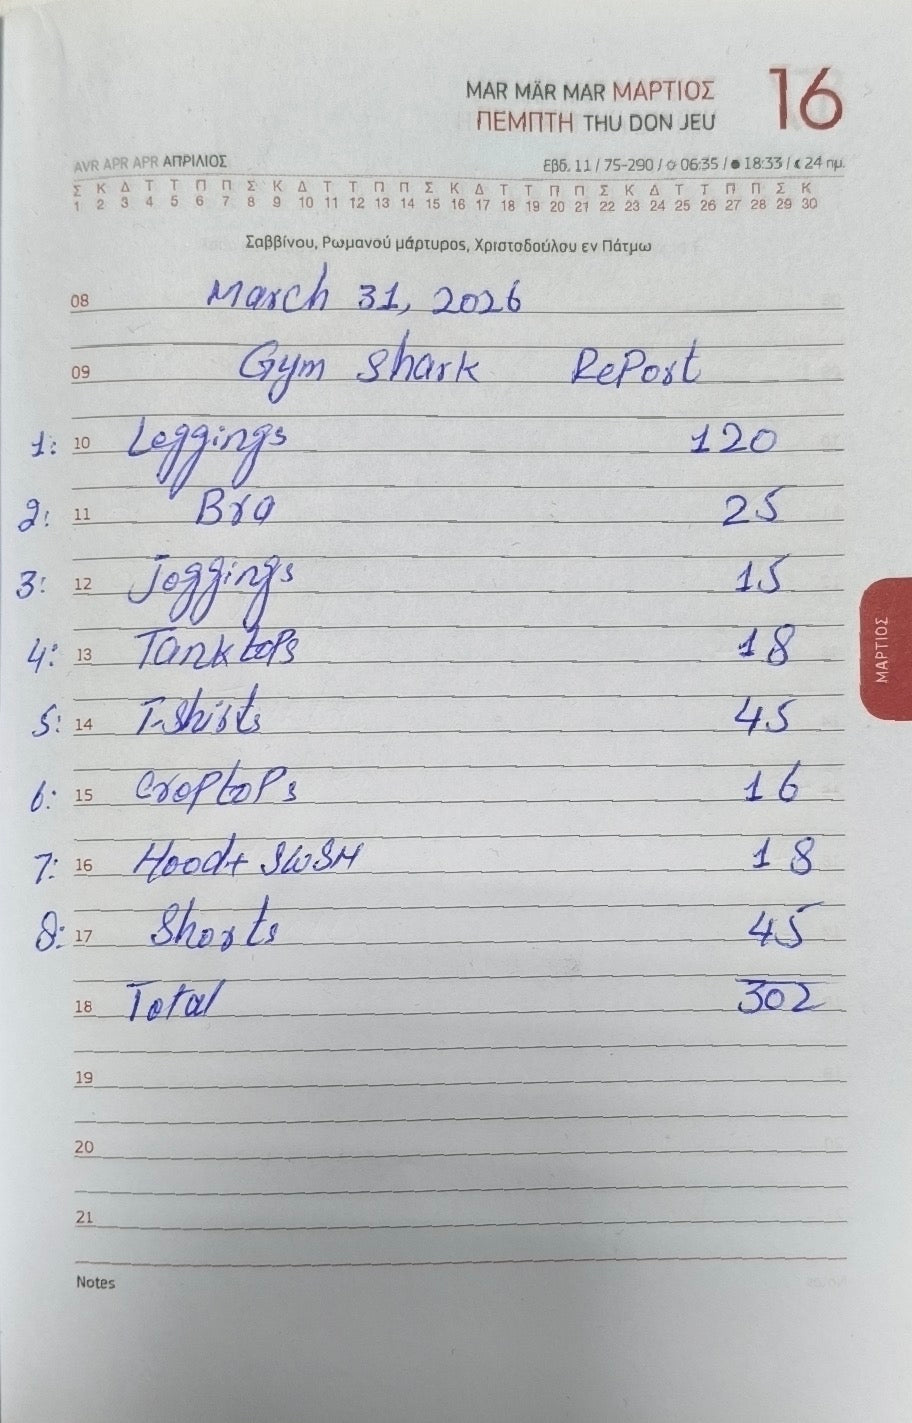 MAR MÄR MAR ΜΑΡΤΙΟΣ 16
ΠΕΜΠΤΗ THU DON JEU
AVR APR APR ΑΠΡΙΛΙΟΣ Εβδ. 11 / 75-290 / ☼ 06:35 / ● 18:33 / ☾ 24 ημ.
Σ Κ Δ Τ Τ Π Π Σ Κ Δ Τ Τ Π Π Σ Κ Δ Τ Τ Π Π Σ Κ Δ Τ Τ Π Π Σ Κ
1 2 3 4 5 6 7 8 9 10 11 12 13 14 15 16 17 18 19 20 21 22 23 24 25 26 27 28 29 30
Σαββίνου, Ρωμανού μάρτυρος, Χριστοδούλου εν Πάτμω
08 March 31, 2026
09 Gym shark RePort
1: 10 Leggings 120
2: 11 Bra 25
3: 12 joggings 15
4: 13 Tank toPs 18
5: 14 T-shirts 45
6: 15 CroPtoPs 16
7: 16 Hood+ SWSH 18
8: 17 Shorts 45
18 Total 302
19
20
21
Notes
ΜΑΡΤΙΟΣ